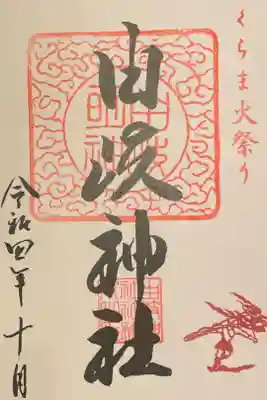 くらま火祭り
由岐神社
令和四年十月